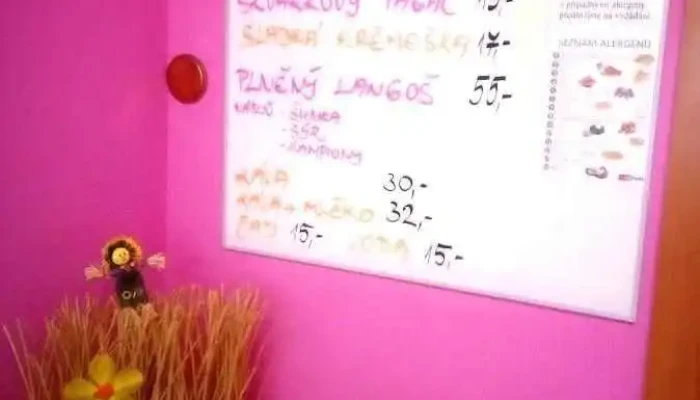 ŠKVARKOVÝ PAGÁČ 15,-
SLADKÁ 17,-
PLNĚNÝ LANGOŠ 55,-
NÁPLŇ - ŠUNKA
- SÝR
- ŽAMPIONY
KÁVA 30,-
KÁVA + MLÉKO 32,-
ČAJ 15,- VODA 15,-
SEZNAM ALERGENŮ